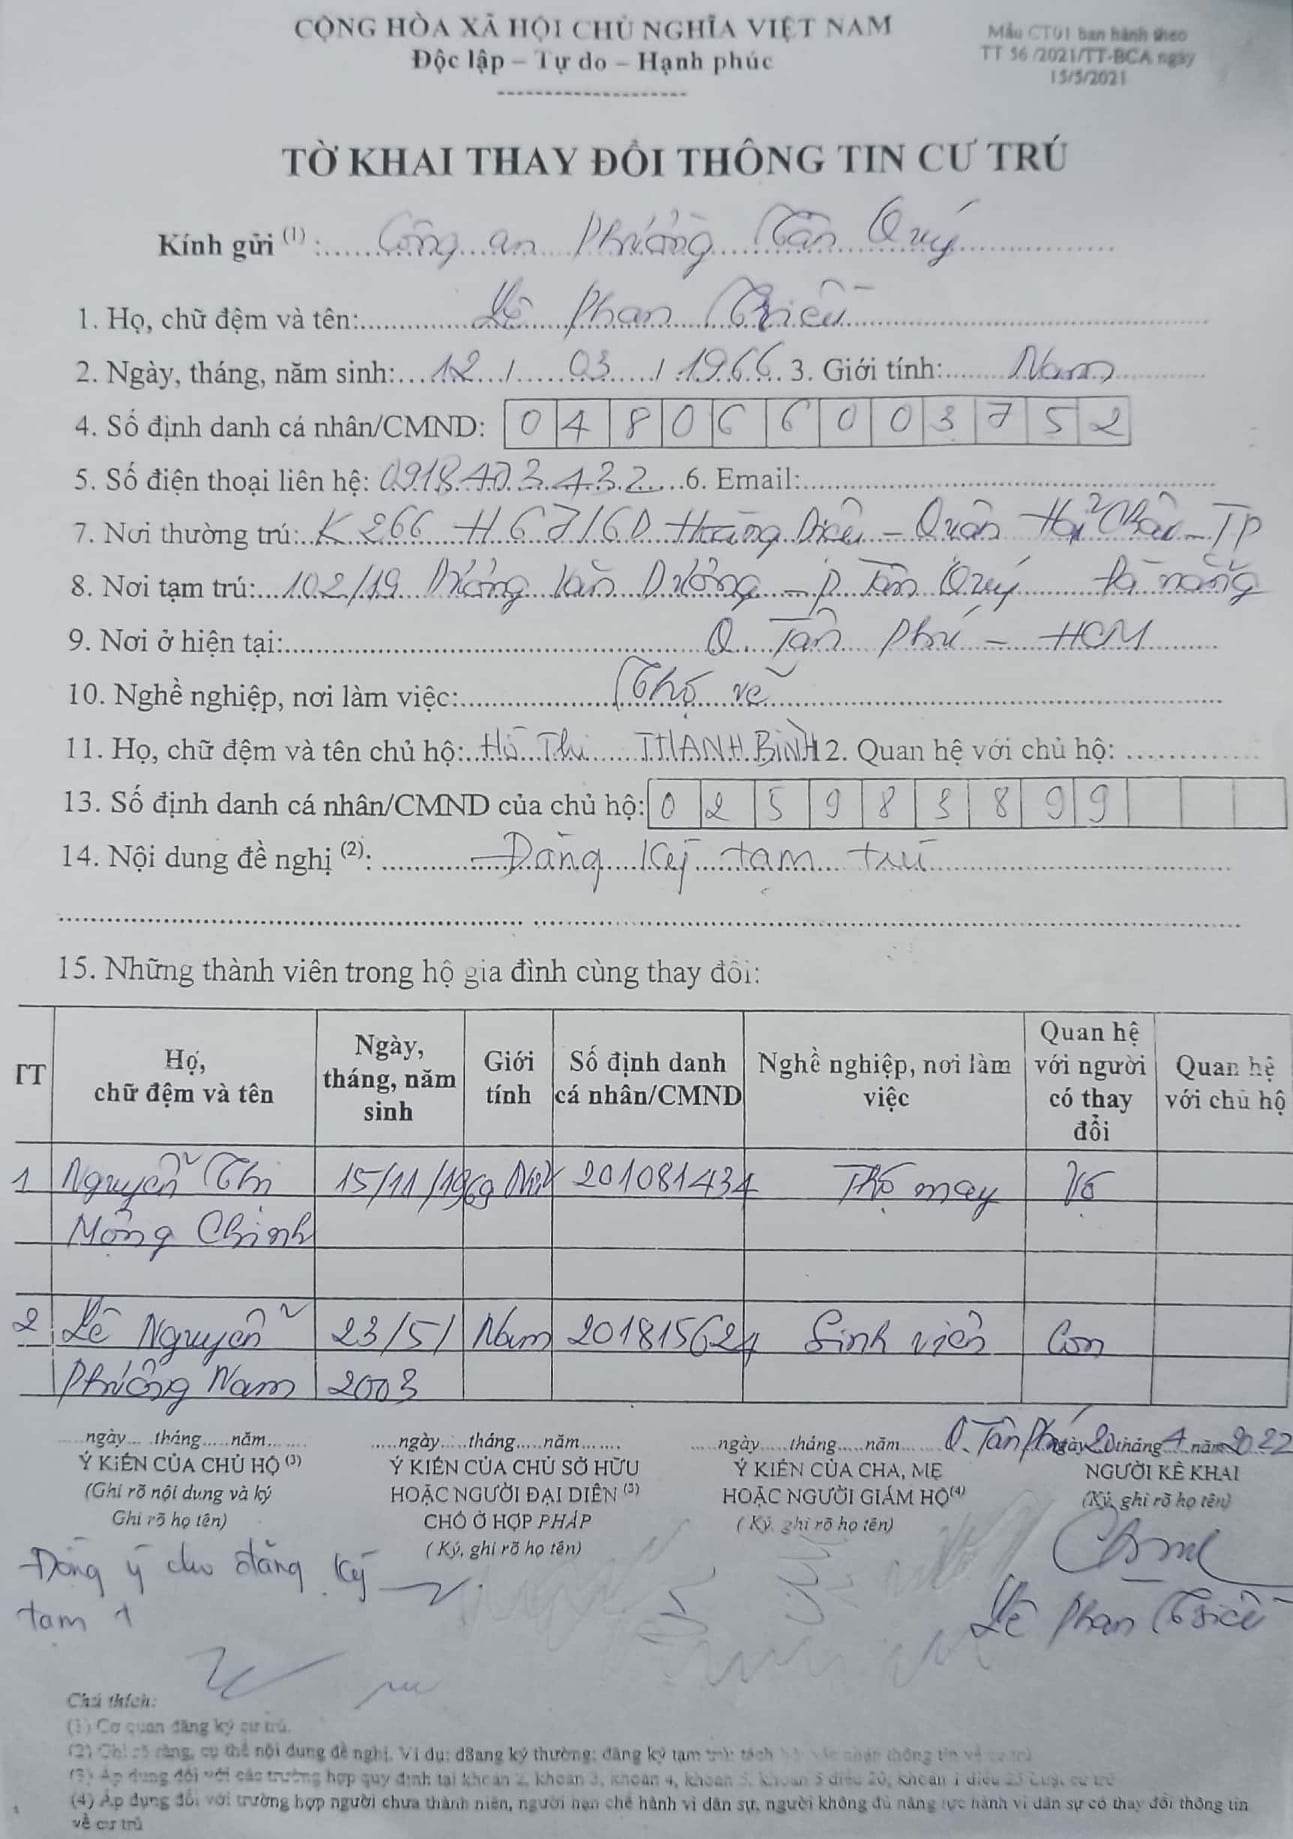 CỘNG HÒA XÃ HỘI CHỦ NGHĨA VIỆT NAM
Độc lập – Tự do – Hạnh phúc
Mẫu CT01 ban hành theo
TT 56 /2021/TT-BCA ngày
15/5/2021
TỜ KHAI THAY ĐỔI THÔNG TIN CƯ TRÚ
Kính gửi (1) : Công an Phường Tân Quý
1. Họ, chữ đệm và tên: Lê Phan Triều
2. Ngày, tháng, năm sinh: 12 / 03 / 1966 3. Giới tính: Nam
4. Số định danh cá nhân/CMND: 048066003752
5. Số điện thoại liên hệ: 0918403432 6. Email:
7. Nơi thường trú: K266 H67/6D Hoàng Diệu - Quận Hải Châu - TP
8. Nơi tạm trú: 102/19 Dương Văn Dương - P Tân Quý Đà nẵng
9. Nơi ở hiện tại: Q. Tân Phú - HCM
10. Nghề nghiệp, nơi làm việc: Thợ vẽ
11. Họ, chữ đệm và tên chủ hộ: Hồ Thị THANH BÌNH 12. Quan hệ với chủ hộ:
13. Số định danh cá nhân/CMND của chủ hộ: 025983899
14. Nội dung đề nghị (2): Đăng ký tạm trú
15. Những thành viên trong hộ gia đình cùng thay đổi:
TT Họ, chữ đệm và tên Ngày, tháng, năm sinh Giới tính Số định danh cá nhân/CMND Nghề nghiệp, nơi làm việc Quan hệ với người có thay đổi Quan hệ với chủ hộ
1 Nguyễn Thị 15/11/1969 Nữ 201081434 Thợ may Vợ
Mộng Chinh
2 Lê Nguyễn 23/5/ Nam 201815624 Sinh viên Con
Phương Nam 2003
ngày tháng năm ngày tháng năm ngày tháng năm Q. Tân Phú ngày 20 tháng 4 năm 2022
Ý KIẾN CỦA CHỦ HỘ (3) Ý KIẾN CỦA CHỦ SỞ HỮU Ý KIẾN CỦA CHA, MẸ NGƯỜI KÊ KHAI
(Ghi rõ nội dung và ký HOẶC NGƯỜI ĐẠI DIỆN (3) HOẶC NGƯỜI GIÁM HỘ(4) (Ký, ghi rõ họ tên)
Ghi rõ họ tên) CHỖ Ở HỢP PHÁP ( Ký, ghi rõ họ tên)
( Ký, ghi rõ họ tên)
Đồng ý cho đăng ký
tạm
Lê Phan Triều
Chú thích:
(1) Cơ quan đăng ký cư trú.
(2) Ghi rõ ràng, cụ thể nội dung đề nghị. Ví dụ: đăng ký thường; đăng ký tạm trú; tách
(3) Áp dụng đối với các trường hợp quy định tại khoản 2, khoản 3, khoản 4, khoản 5, khoản 5 điều 20; khoản 1 điều 25 Luật cư trú
(4) Áp dụng đối với trường hợp người chưa thành niên, người hạn chế hành vi dân sự, người không đủ năng lực hành vi dân sự có thay đổi thông tin
về cư trú